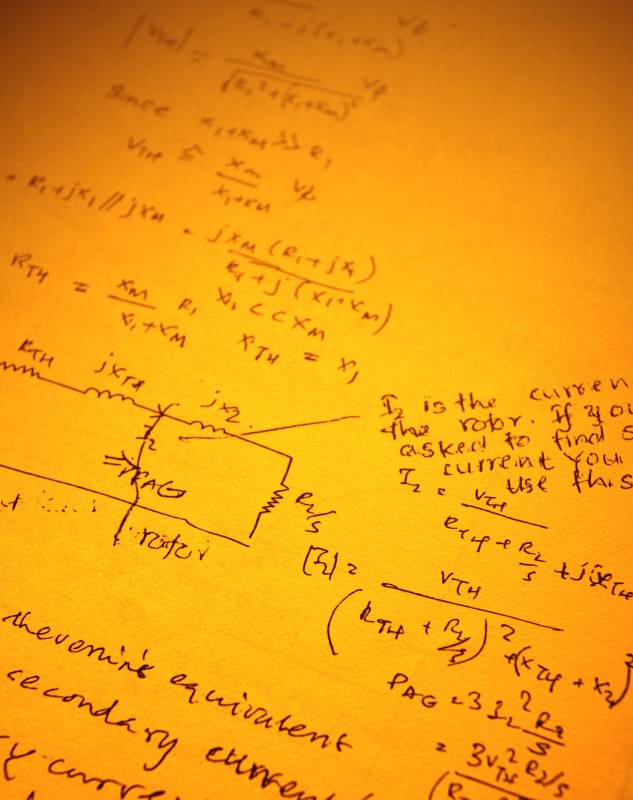 R₁ + j(x₁ + xₘ) Vφ
|V_TH| = xₘ / √(R₁² + (x₁ + xₘ)²) Vφ
since x₁ + xₘ >> R₁
V_TH ≅ xₘ / (x₁ + xₘ) Vφ
R₁ + jx₁ // jxₘ = jxₘ (R₁ + jx₁) / (R₁ + j(x₁ + xₘ))
R_TH = xₘ / (x₁ + xₘ) R₁ x₁ << xₘ
x_TH = x₁
R_TH jx_TH jx₂
I₂
⇒ P_AG
R₂/s
rotor
I₂ is the curren
the rotor. If you
asked to find s
current you
use this
I₂ = V_TH / (R_TH + R₂/s + jx_TH
|I₂| = V_TH / (R_TH + R₂/s)² + (x_TH + x₂)²
P_AG = 3 I₂² R₂/s
= 3V_TH² R₂/s
thevenin's equivalent
secondary current
y curre